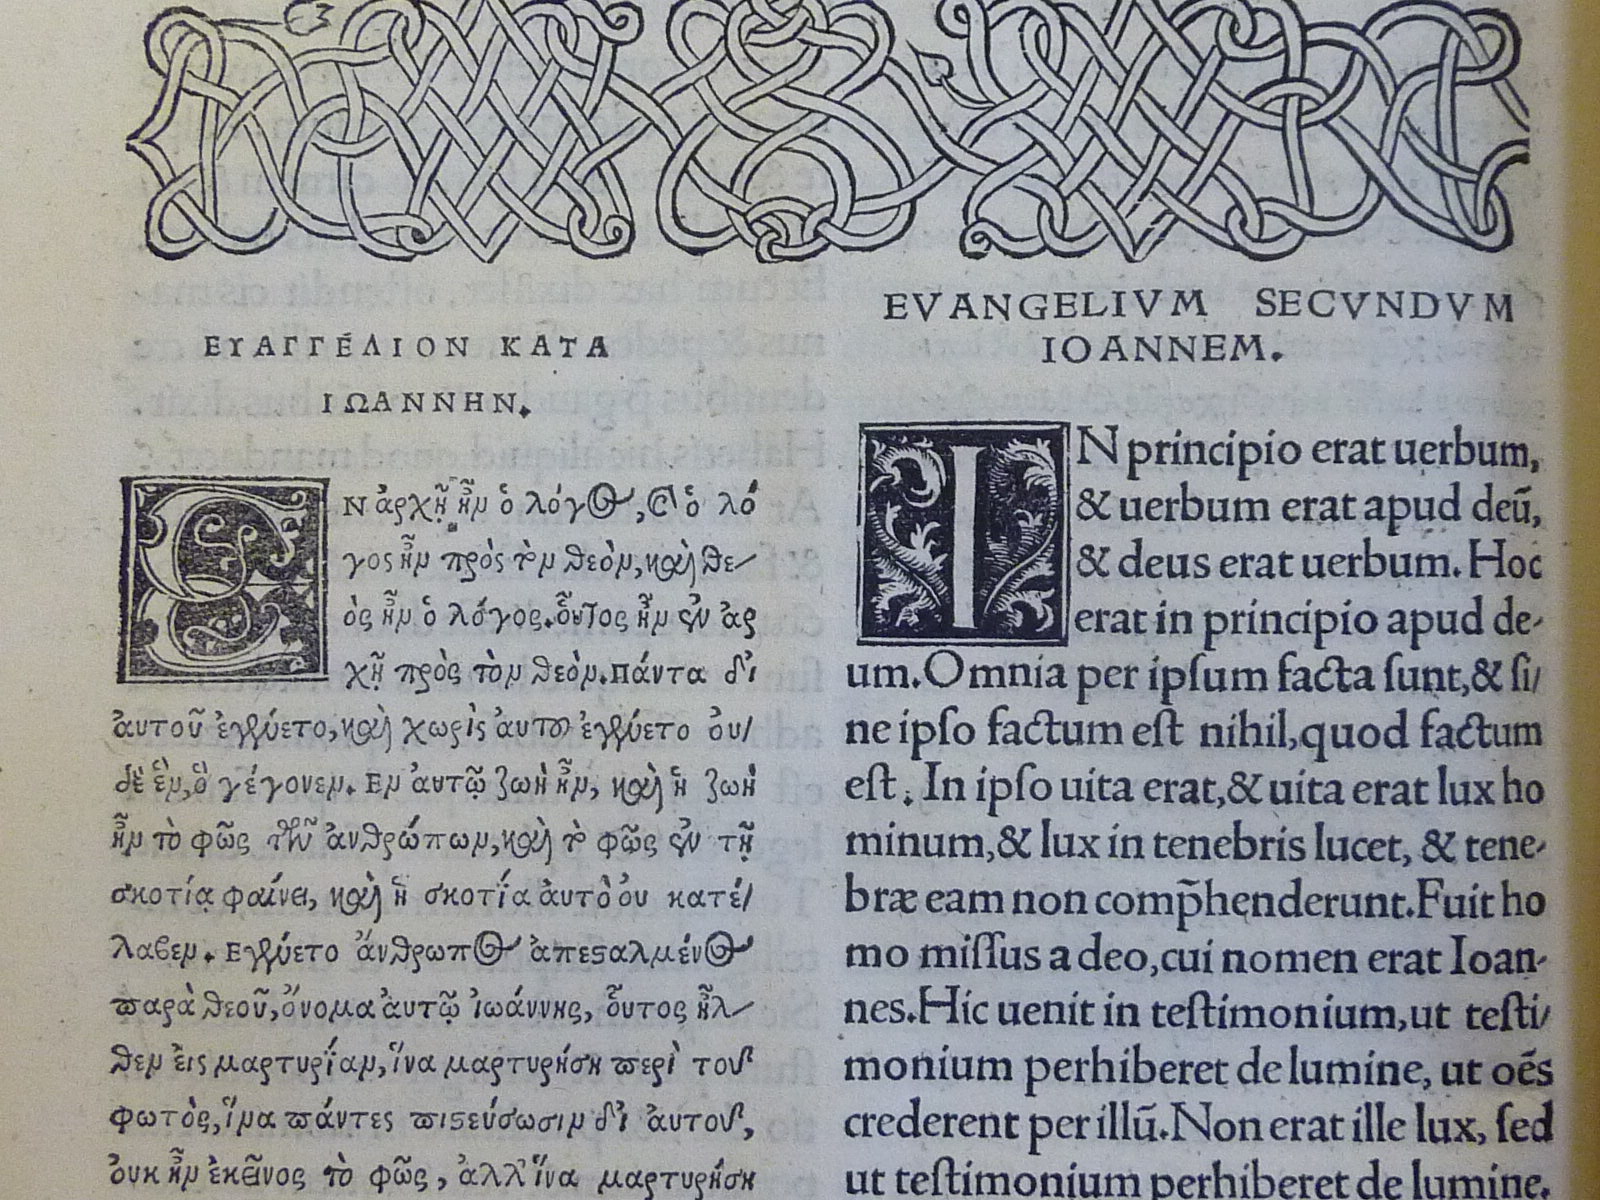 ΕΥΑΓΓΈΛΙΟΝ ΚΑΤΑ
ΙΩΑΝΝΗΝ.
ΕΝ ἀρχῇ ἦν ὁ λόγος, καὶ ὁ λό
γος ἦν πρὸς τὸν θεὸν, καὶ θε-
ὸς ἦν ὁ λόγος. οὗτος ἦν ἐν ἀρ
χῇ πρὸς τὸν θεὸν. πάντα δἰ
ἀυτοῦ ἐγένετο, καὶ χωρὶς ἀυτοῦ ἐγένετο ὀυ/
δὲ ἓν, ὃ γέγονεν. Εν ἀυτῷ ζωὴ ἦν, καὶ ἡ ζωὴ
ἦν τὸ φῶς τῶν ἀνθρώπων, καὶ τὸ φῶς ἐν τῇ
σκοτίᾳ φαίνει, καὶ ἡ σκοτία ἀυτὸ ὀυ κατέ/
λαβεν. Εγένετο ἄνθρωπος ἀπεσταλμένος
παρὰ θεοῦ, ὄνομα ἀυτῷ ἰωάννης, οὗτος ἦλ-
θεν ἐις μαρτυρίαν, ἵνα μαρτυρήσῃ περὶ τοῦ
φωτὸς, ἵνα πάντες πιστεύσωσιν δἰ ἀυτοῦ,
ὀυκ ἦν ἐκεῖνος τὸ φῶς, ἀλλ' ἵνα μαρτυρήσῃ
EVANGELIVM SECVNDVM
IOANNEM.
IN principio erat uerbum,
& uerbum erat apud deū,
& deus erat uerbum. Hoc
erat in principio apud de-
um. Omnia per ipſum facta ſunt, & ſi/
ne ipſo factum eſt nihil, quod factum
eſt. In ipſo uita erat, & uita erat lux ho
minum, & lux in tenebris lucet, & tene-
bræ eam non comp̄henderunt. Fuit ho
mo miſſus a deo, cui nomen erat Ioan-
nes. Hic uenit in teſtimonium, ut teſti/
monium perhiberet de lumine, ut oēs
crederent per illū. Non erat ille lux, ſed
ut teſtimonium perhiberet de lumine.